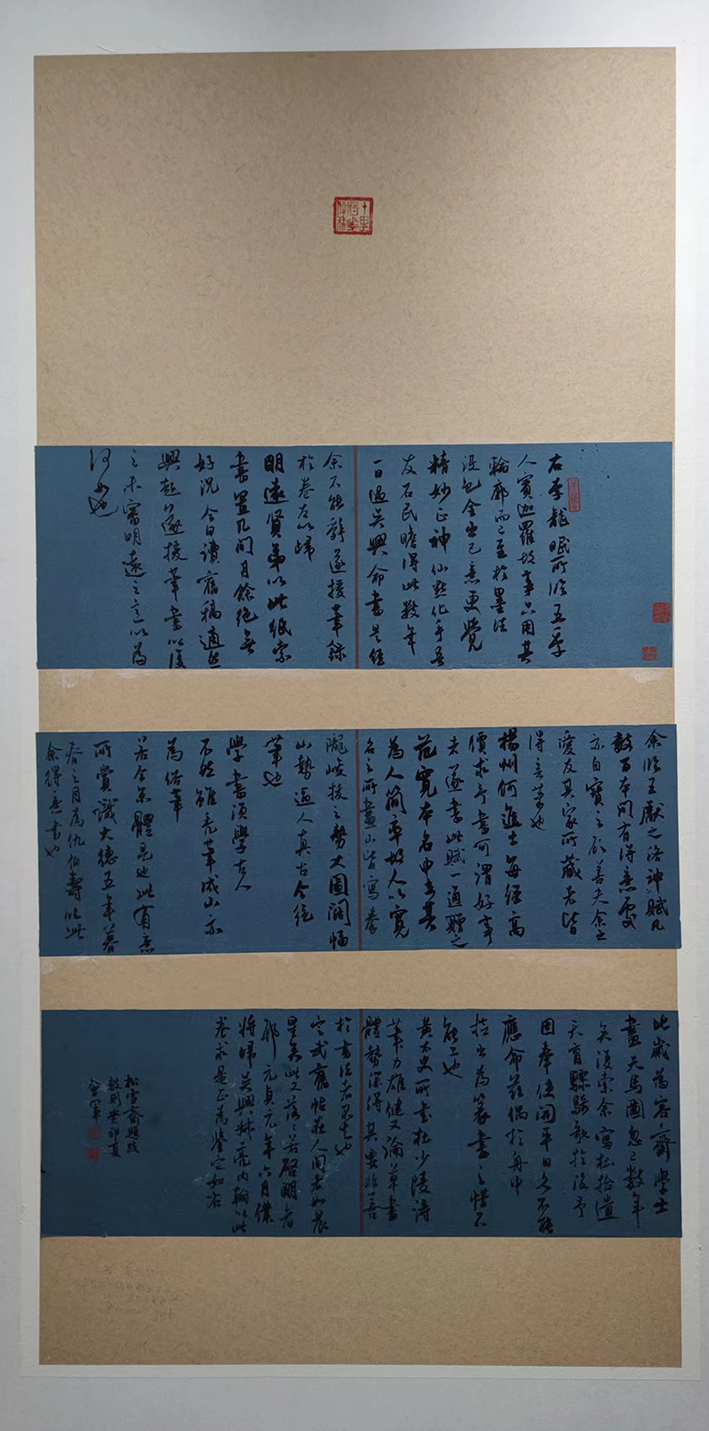 右李龍眠所臨王孕
人賓迦羅故事只用其
輪廓而已至於墨法
設色全出己意更覺
精妙正神仙點化手吾
友石民瞻得此數年
一日過吳興命書是經
余不能辭遂援筆錄
於卷左以歸
明遠賢弟以此紙索
書置几間月餘絕無
好況今日讀舊稿適
興起遂援筆書以復
之未審明遠之意以為
何如也
余臨王獻之洛神賦凡
數百本間有得意處
亦自寶之顧善夫余之
愛友其家所藏者皆
得意筆也
揚州何進士每經高
價求予書可謂好事
者遂書此賦一通贈之
范寬本名中立以其
為人簡率故人以寬
名之所畫山皆寫秦
隴峻拔之勢大圖闊幅
山勢逼人真古今絕
筆也
學書須學古人
不然雖禿筆成山亦
為俗筆
若令宗體是也此有意
所賞識大德五年暮
春之月為仇伯壽臨此
余得意書也
此歲為容齋學士
畫天馬圖忽已數年
矣復索余寫杜拾遺
天育驃騎歌於後予
因奉使開平日久不能
應命茲偶於舟中
撿出為篆書之惜不
能工也
黃太史所書杜少陵詩
筆力雄健又論草書
體勢深得其要非善
於書法者不知也
定武舊帖在人間者如晨
星矣此又落落若啓明者
耶元貞元年六月僕
將歸吳興叔亮內翰以此
卷求是正為鑒定如右
松雪齋題跋
數則癸卯夏